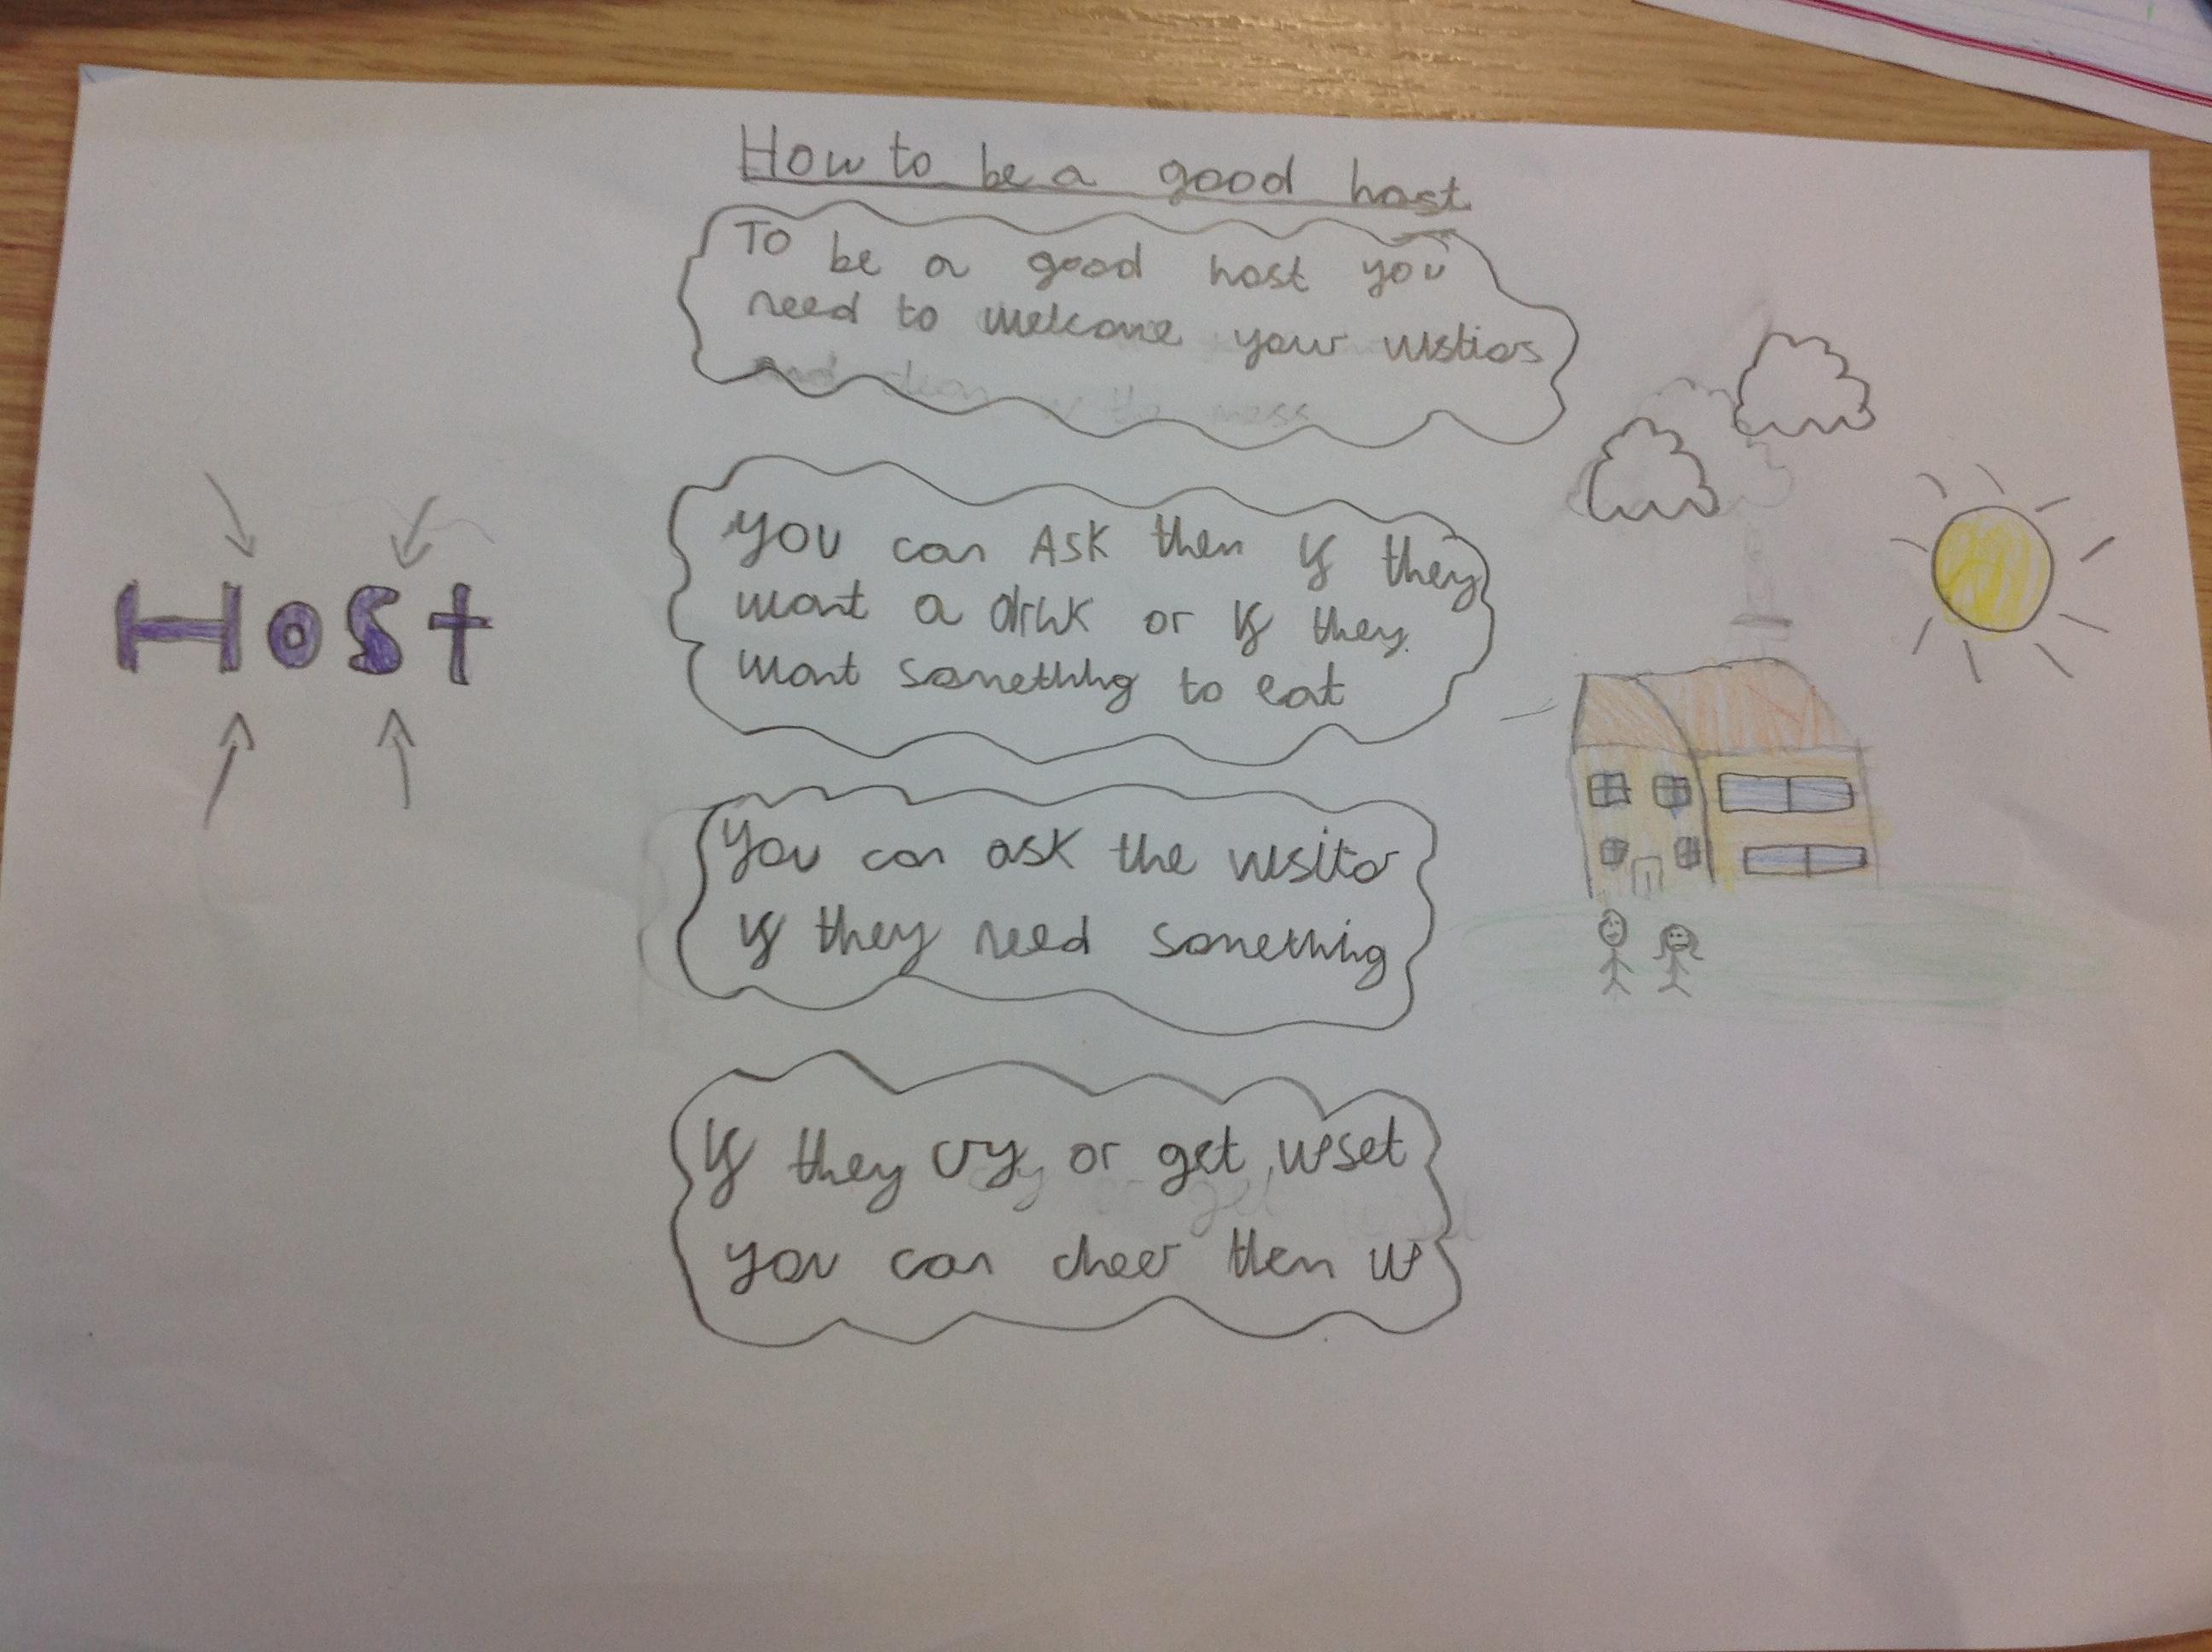 How to be a good host
To be a good host you
need to welcome your vistios
Host
you can ASK then if they
want a drink or if they
want something to eat
you can ask the visito
if they need something
if they cry or get upset
you can cheer then up